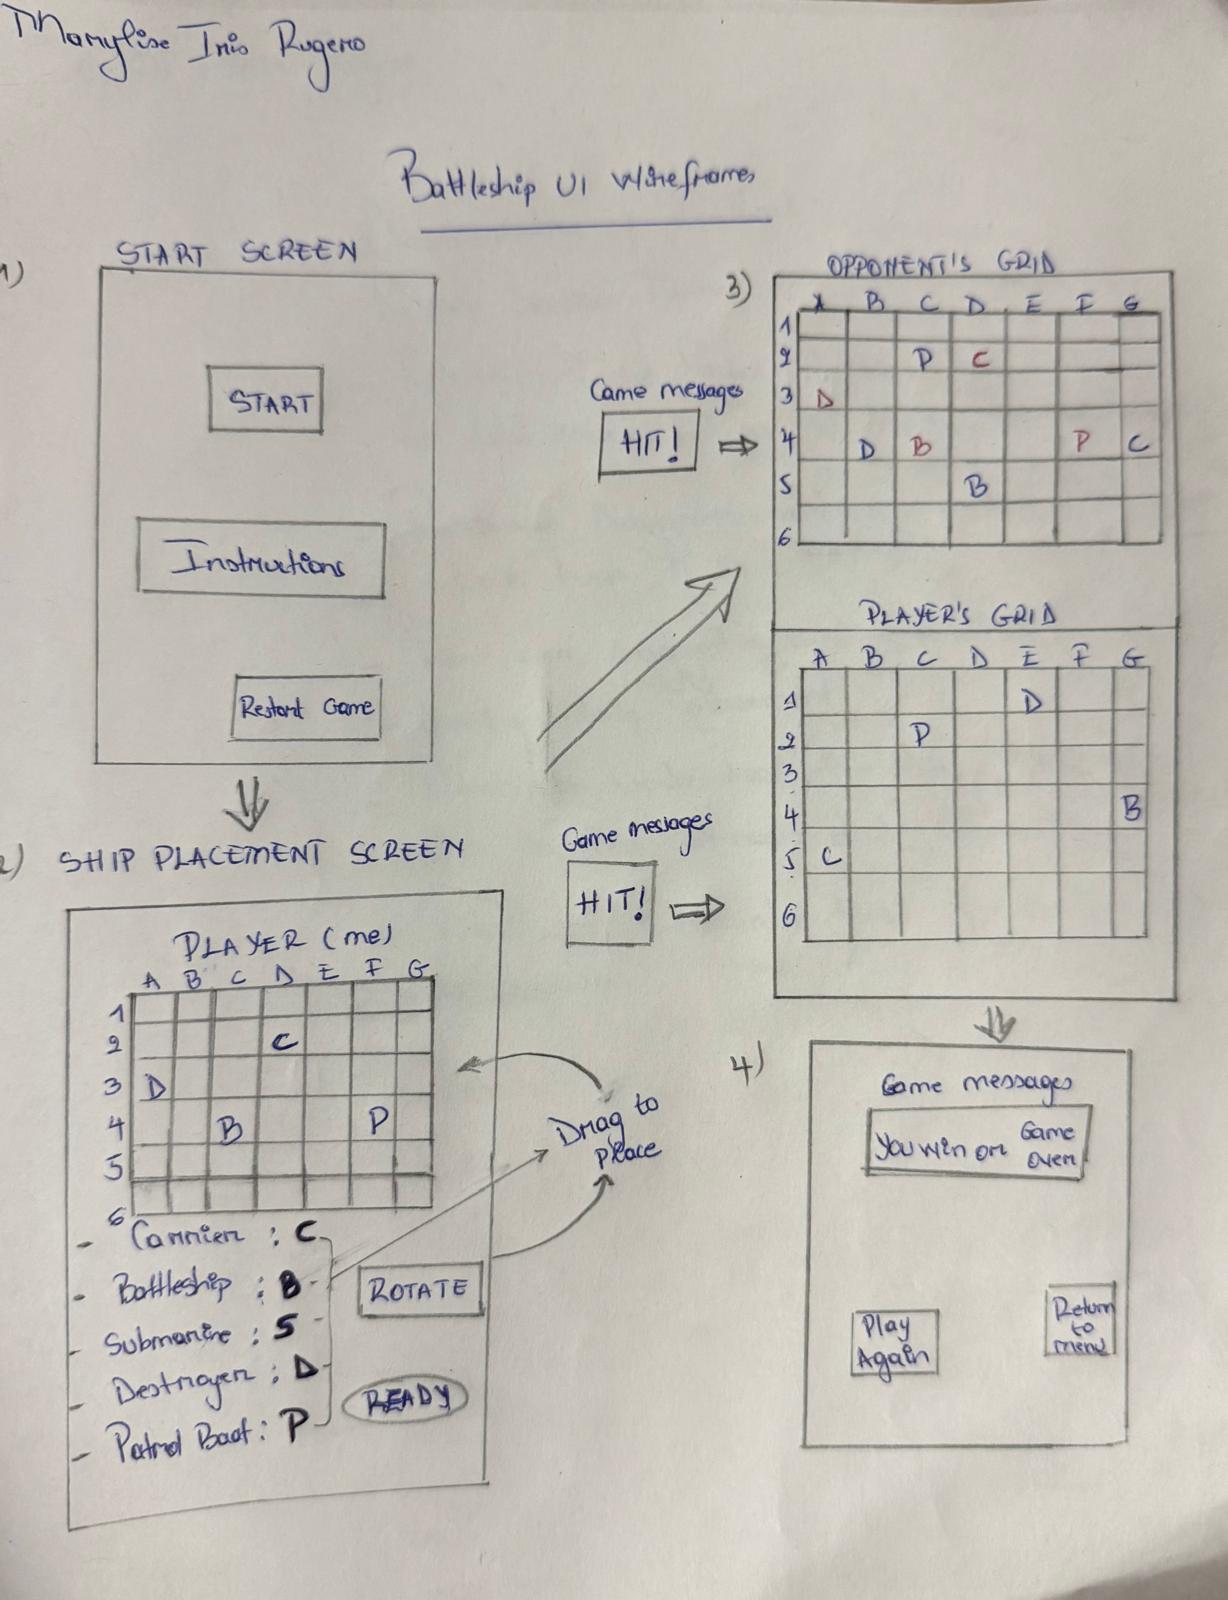 Marylise Iris Rugero
Battleship UI Wireframes
1)
START SCREEN
START
Instructions
Restart Game
2) SHIP PLACEMENT SCREEN
PLAYER (me)
A B C D E F G
1
2 C
3 D
4 B P
5
6
- Carrier : C
- Battleship : B
- Submarine : S
- Destroyer : D
- Patrol Boat : P
ROTATE
READY
Drag to
place
3)
OPPONENT'S GRID
A B C D E F G
1
2 P C
3 D
4 D B P C
5 B
6
Game messages
HIT!
PLAYER'S GRID
A B C D E F G
1 D
2 P
3
4 B
5 C
6
Game messages
HIT!
4)
Game messages
You win or Game
over
Play
Again
Return
to
menu